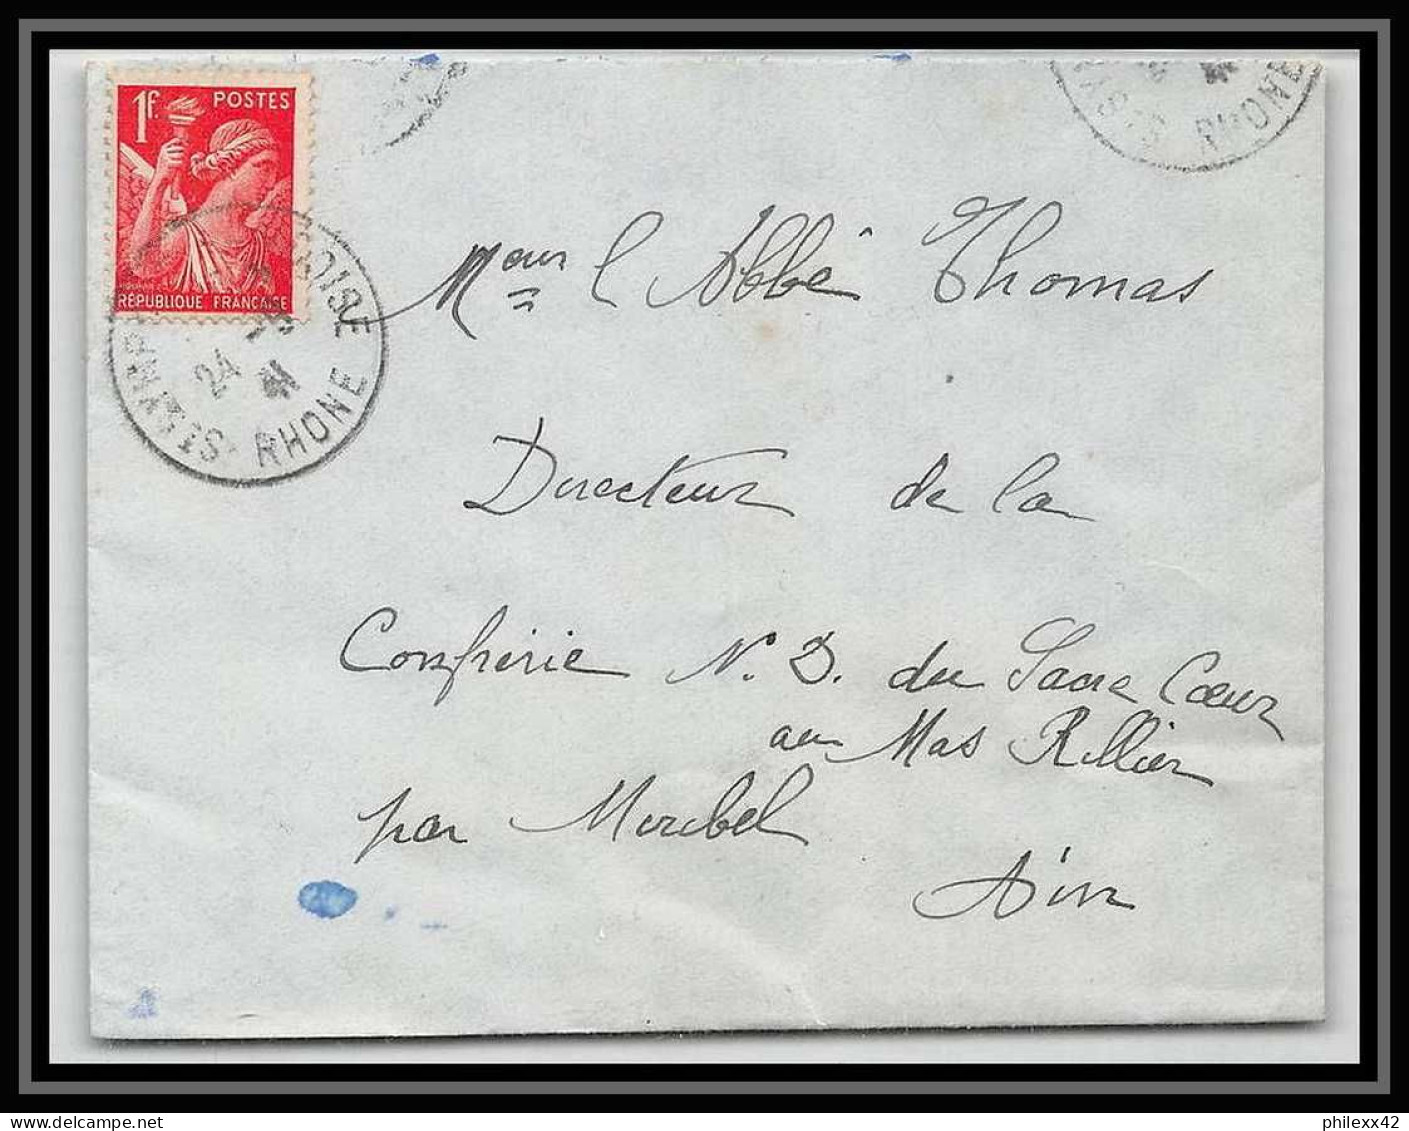 1F. POSTES
RÉPUBLIQUE FRANÇAISE
24
41
RHONE
RHONE
Meur l'Abbé Thomas
Directeur de la
Confrérie N. D. du Sacré Cœur
au Mas Rillier
par Miribel
Ain
philexx42